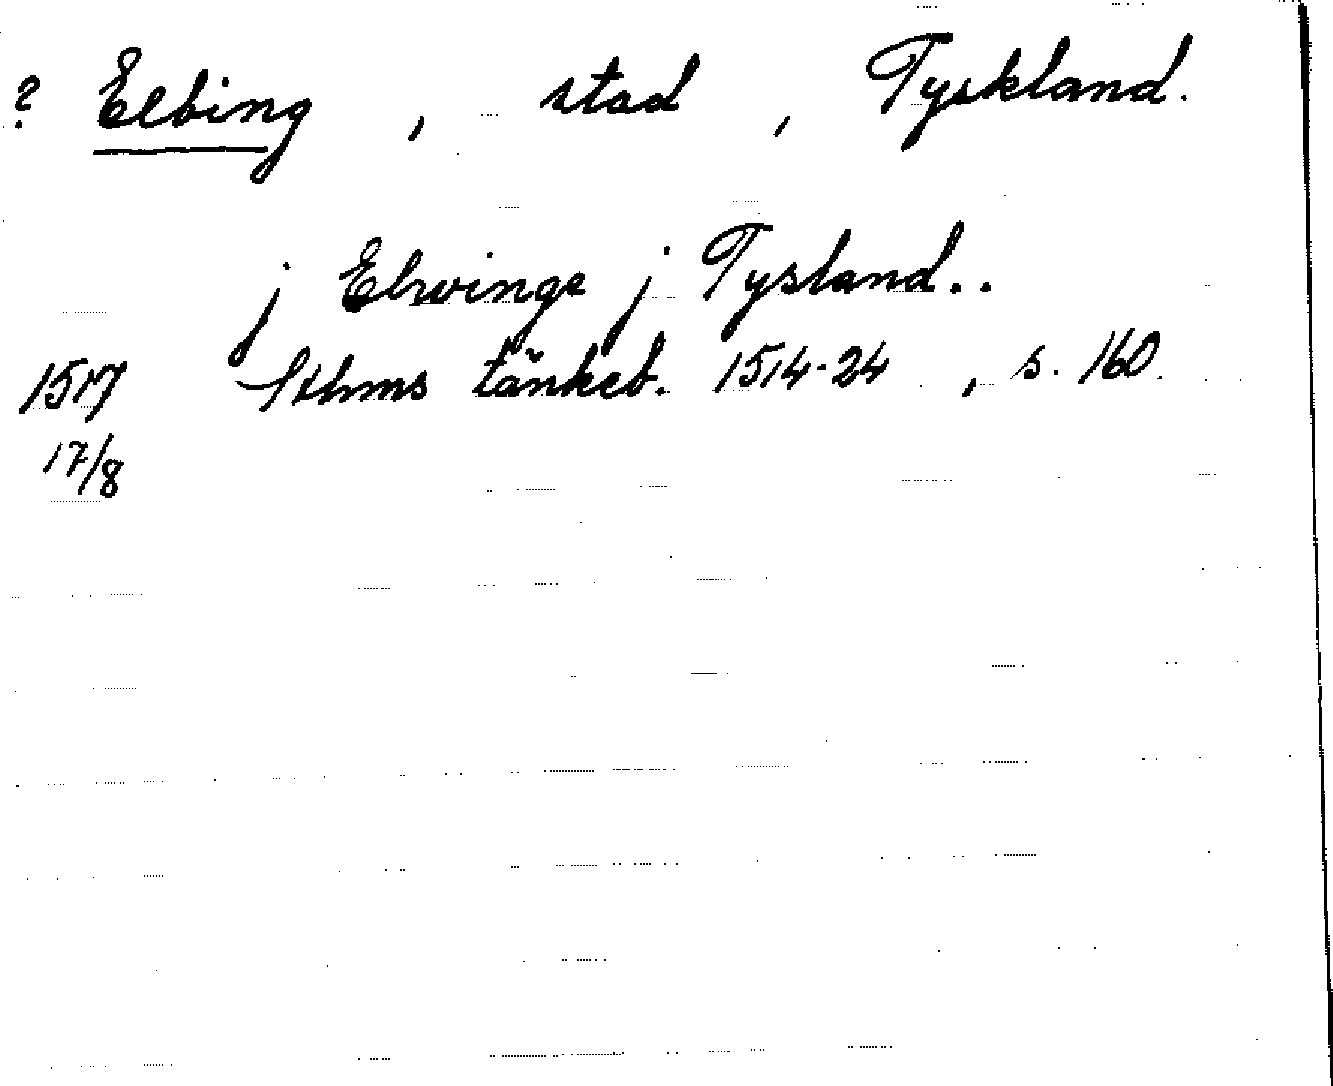 ? Elbing , stad , Tyskland.
j Elwinge j Tysland..
1517 Sthms tänkeb. 1514-24 , s. 160.
17/8